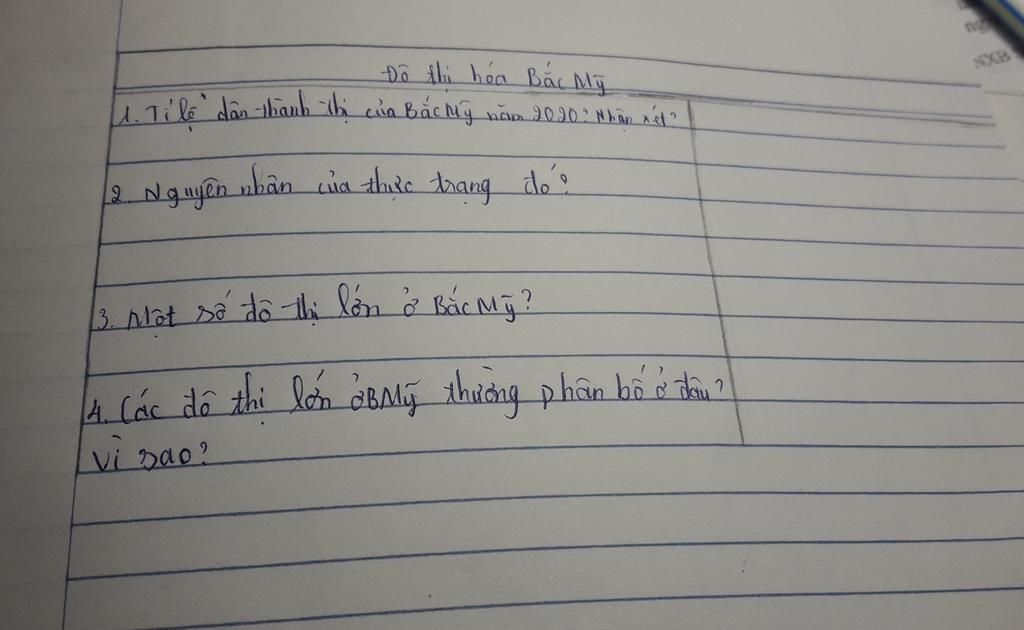 Đô thị hóa Bắc Mỹ
1. Tỉ lệ dân thành thị của Bắc Mỹ năm 2020? Nhận xét?
2. Nguyên nhân của thực trạng đó?
3. Một số đô thị lớn ở Bắc Mỹ?
4. Các đô thị lớn ở BMỹ thường phân bố ở đâu?
Vì sao?
NXB